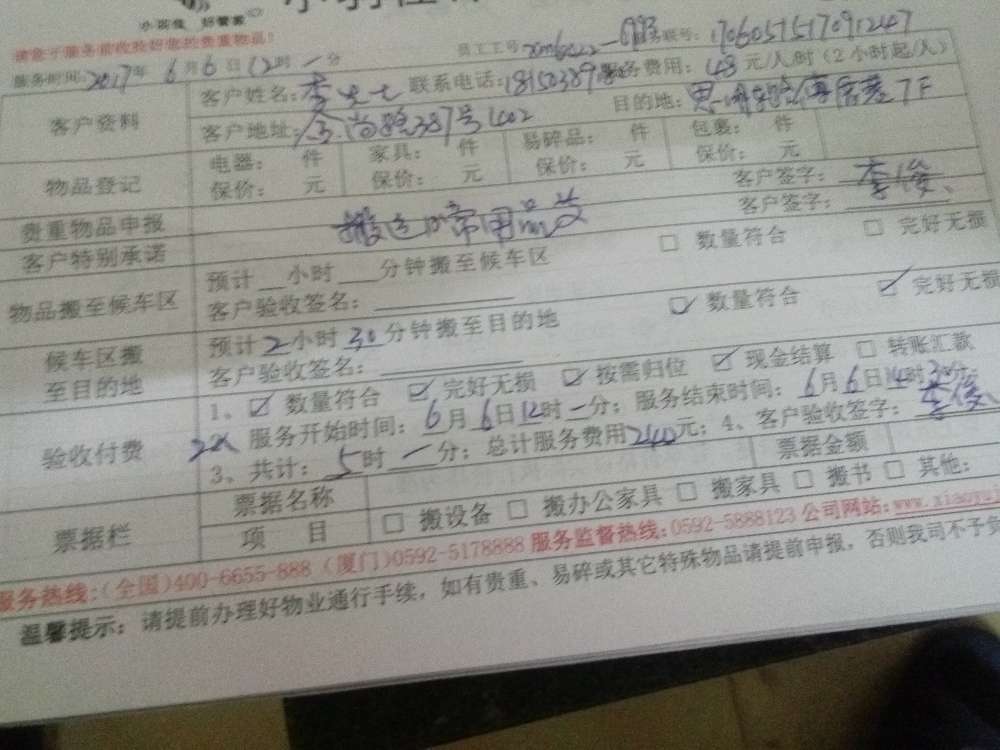 小羽佳 好管家
服务时间：2017年6月6日12时一分
客户资料 客户姓名：李女士 联系电话： 服务费用：48元/人/时（2小时起/人）
客户地址：金尚路387号402 目的地： 7F
物品登记 电器： 件 家具： 件 易碎品： 件 包裹： 件
保价： 元 保价： 元 保价： 元 保价： 元
贵重物品申报 客户签字：李俊
客户特别承诺 搬运日常用品类 客户签字：
物品搬至候车区 预计__小时___分钟搬至候车区 □ 数量符合 □ 完好无损
客户验收签名：
候车区搬至目的地 预计2小时30分钟搬至目的地 ☑ 数量符合 ☑ 完好无损
客户验收签名：
验收付费 1、☑ 数量符合 ☑ 完好无损 ☑ 按需归位 ☑ 现金结算 □ 转账汇款
2人 服务开始时间：6月6日12时一分；服务结束时间：6月6日14时30分；
3、共计：5时一分；总计服务费用240元；4、客户验收签字：李俊
票据栏 票据名称 票据金额
项 目 □ 搬设备 □ 搬办公家具 □ 搬家具 □ 搬书 □ 其他：
服务热线：（全国）400-6655-888（厦门）0592-5178888 服务监督热线：0592-5888123 公司网站：www.xiaoyuj
温馨提示：请提前办理好物业通行手续，如有贵重、易碎或其它特殊物品请提前申报，否则我司不予